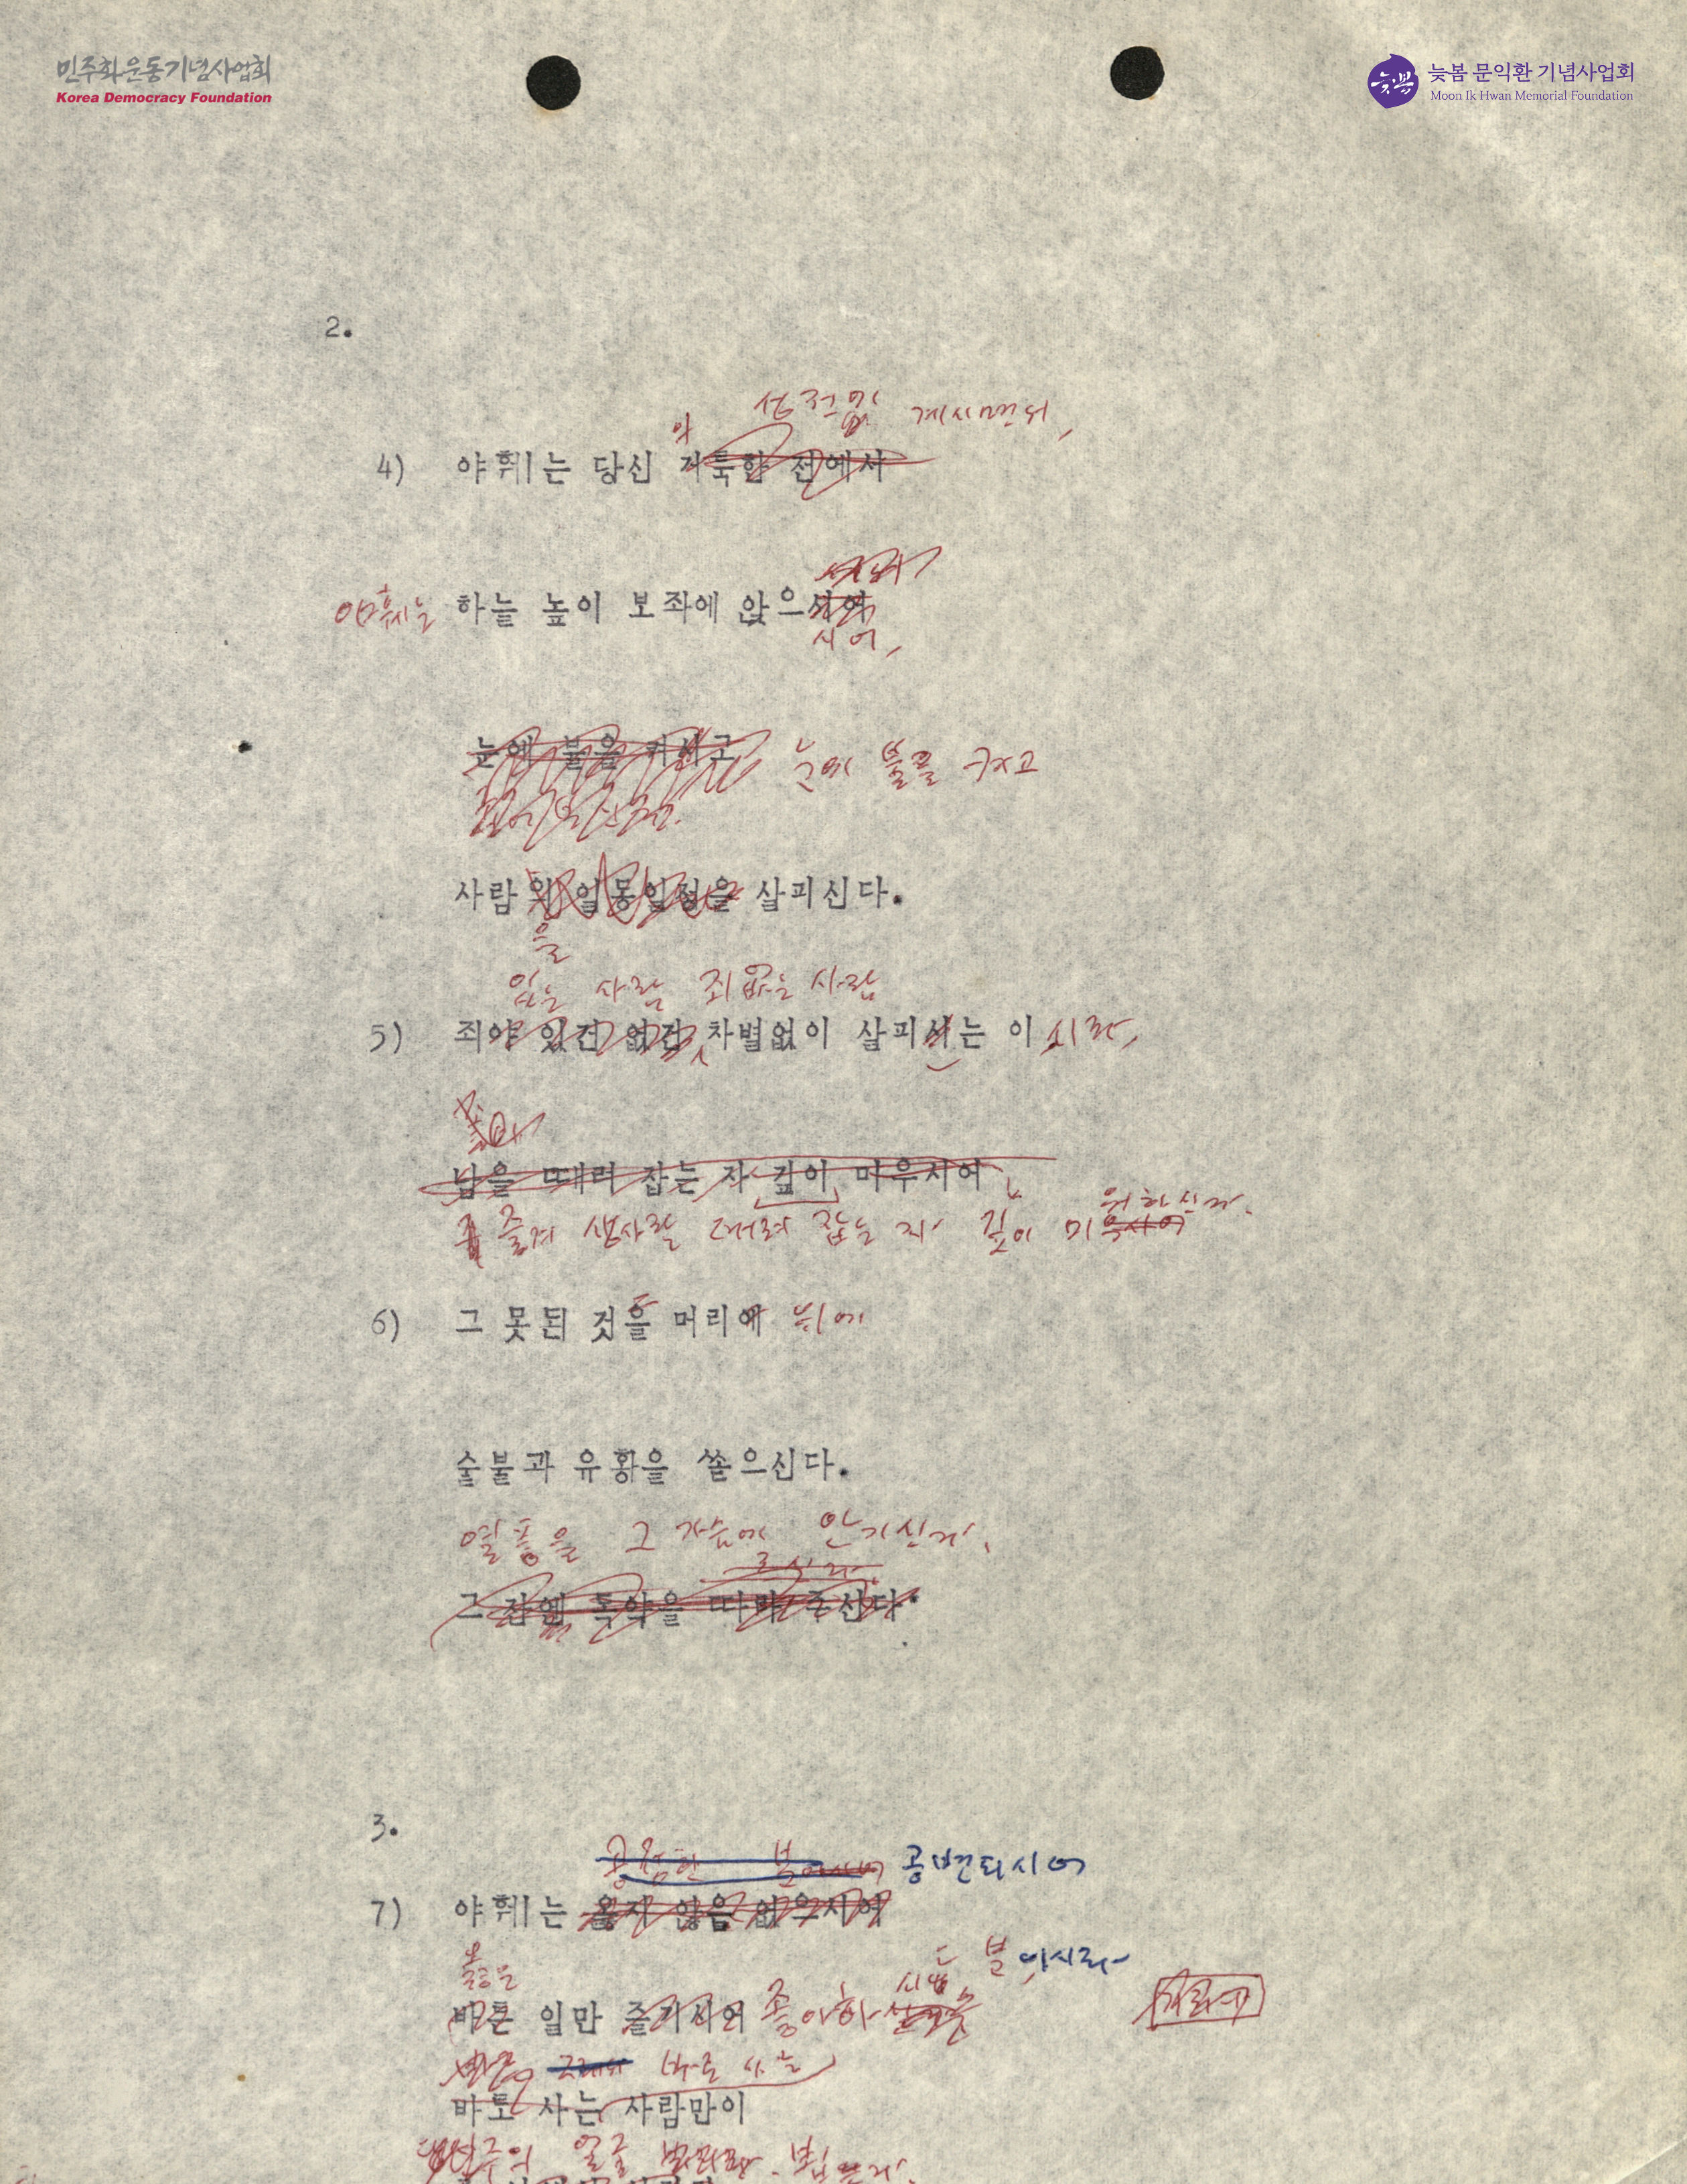 민주화운동기념사업회
Korea Democracy Foundation
늦봄
늦봄 문익환 기념사업회
Moon Ik Hwan Memorial Foundation
2.
성전에 계시면서,
의
4) 야훼는 당신 거룩한 전에서
야훼는 하늘 높이 보좌에 앉으시어
시어,
눈에 불을 켜시고 눈에 불을 켜고
사람의 일동일정을 살피신다.
을
있는 사람 죄없는 사람
5) 죄야 있건 없건 차별없이 살피시는 이시라,
남을 때려 잡는 자 깊이 미우시어
워하신다.
즐겨 생사람 때려 잡는 자 깊이 미우시어
6) 그 못된 것을 머리에 위에
숯불과 유황을 쏟으신다.
열풍을 그 가슴에 안기신다.
그 잔에 독약을 따라 주신다.
3.
공변되시어
7) 야훼는 옳지 않음 없으시어
분이시라
옳은
바른 일만 즐기시어 좋아하
그래서 바로 사는
바로 사는 사람만이
얼굴